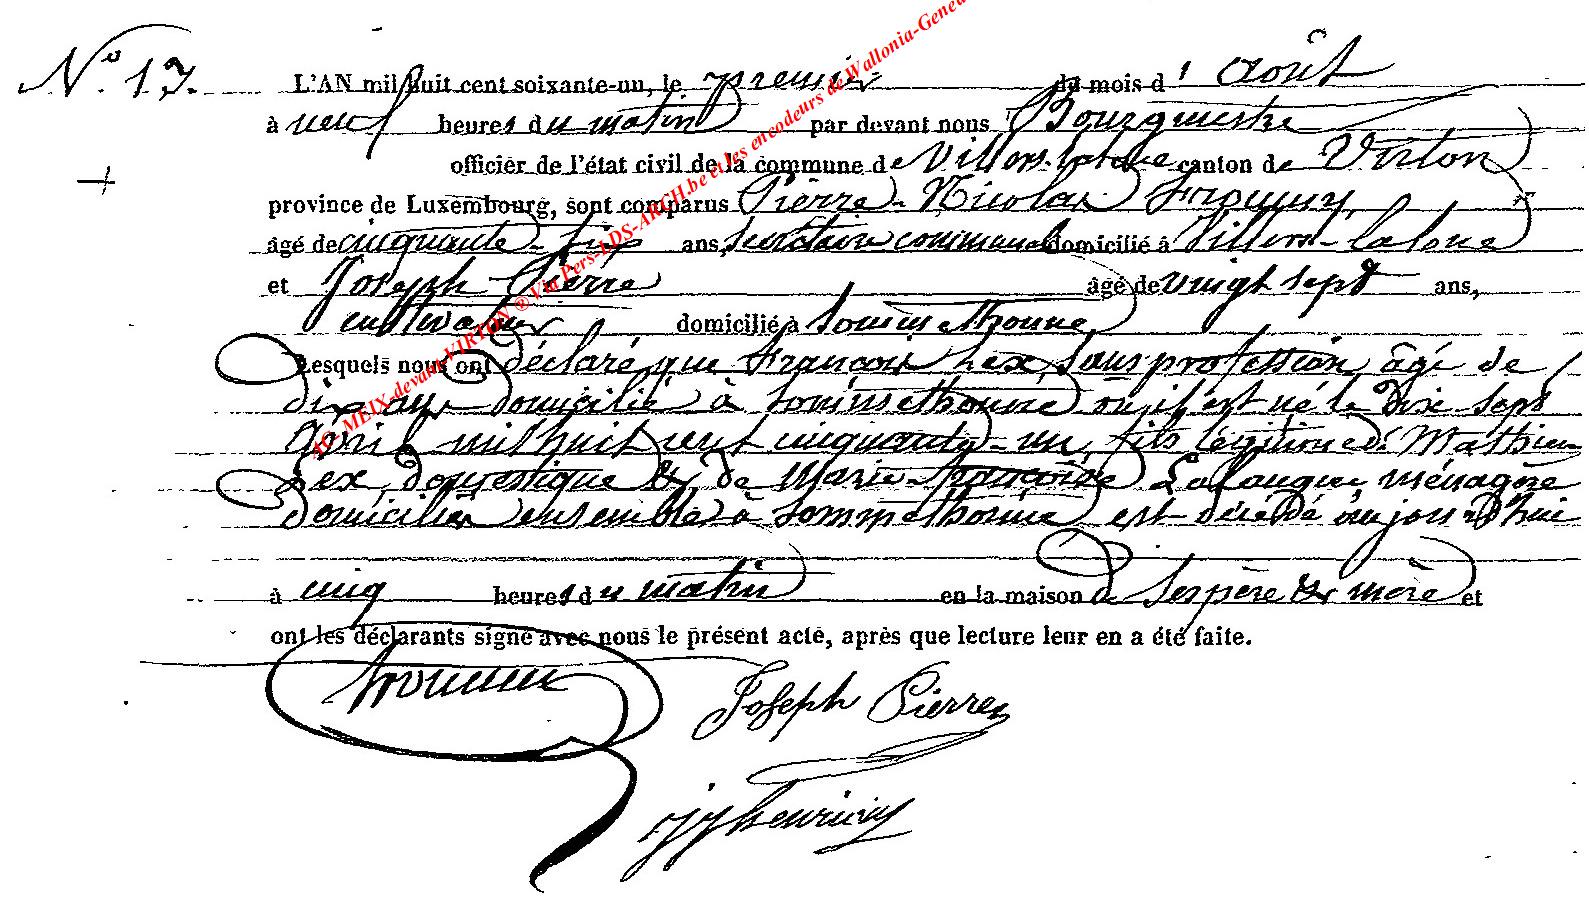 N.o 17.
L'AN mil huit cent soixante-un, le premier du mois d'Août
à neuf heures du matin par devant nous Bourgmestre
officier de l'état civil de la commune de Villers-laloue canton de Virton
province de Luxembourg, sont comparus Pierre-Nicolas
âgé de cinquante-six ans, secrétaire communal domicilié à Villers-laloue
et Joseph Pierre âgé de vingt sept ans,
cultivateur domicilié à Sommethonne
Lesquels nous ont déclaré que François Lex, sans profession âgé de
dix ans domicilié à Sommethonne où il est né le dix sept
Avril mil huit cent cinquante-un, fils légitime de Mathieu
Lex, domestique & de Marie-Françoise Lalangue ménagère
domiciliés ensemble à Sommethonne est décédé aujourd'hui
à cinq heures du matin en la maison de ses père & mère et
ont les déclarants signé avec nous le présent acte, après que lecture leur en a été faite.
Joseph Pierre
AD MEIX-devant-VIRTON ® Via Pers-LDS-ARCH.be et les encodeurs de Wallonia-Geneu